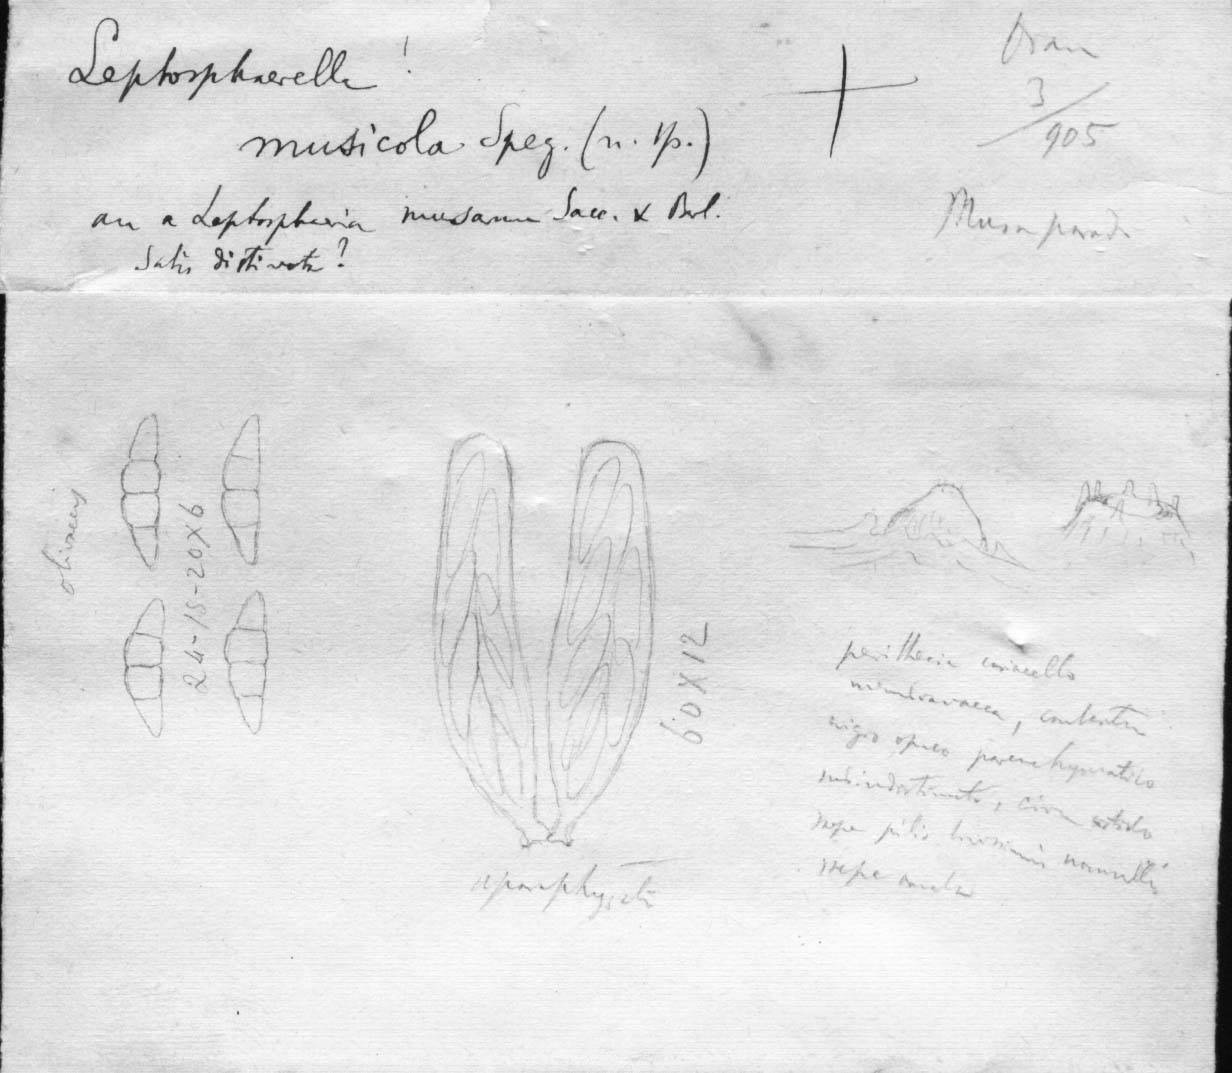 Leptosphaerella!
musicola Speg. (n. sp.)
an a Leptosphaeria musarum Sacc. & Berl.
satis distincta?
Oran
3/905
Musa parad.
olivaceis
24-18-20X6
60X12
aparaphysati
perithecia coriacello
membranacea, contextu
nigro opaco parenchymatico
subindistincto, circa ostiolo
saepe pilis brevissimis nonnullis
saepe